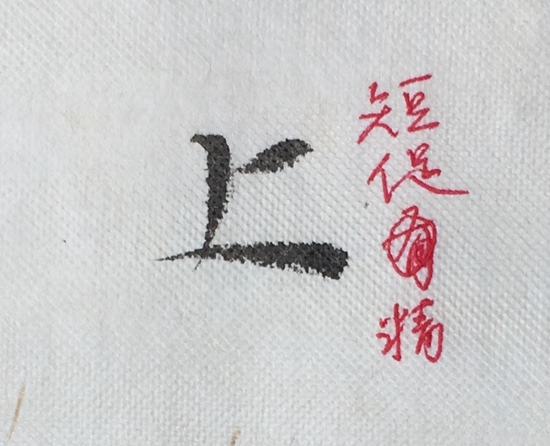 上
短促精